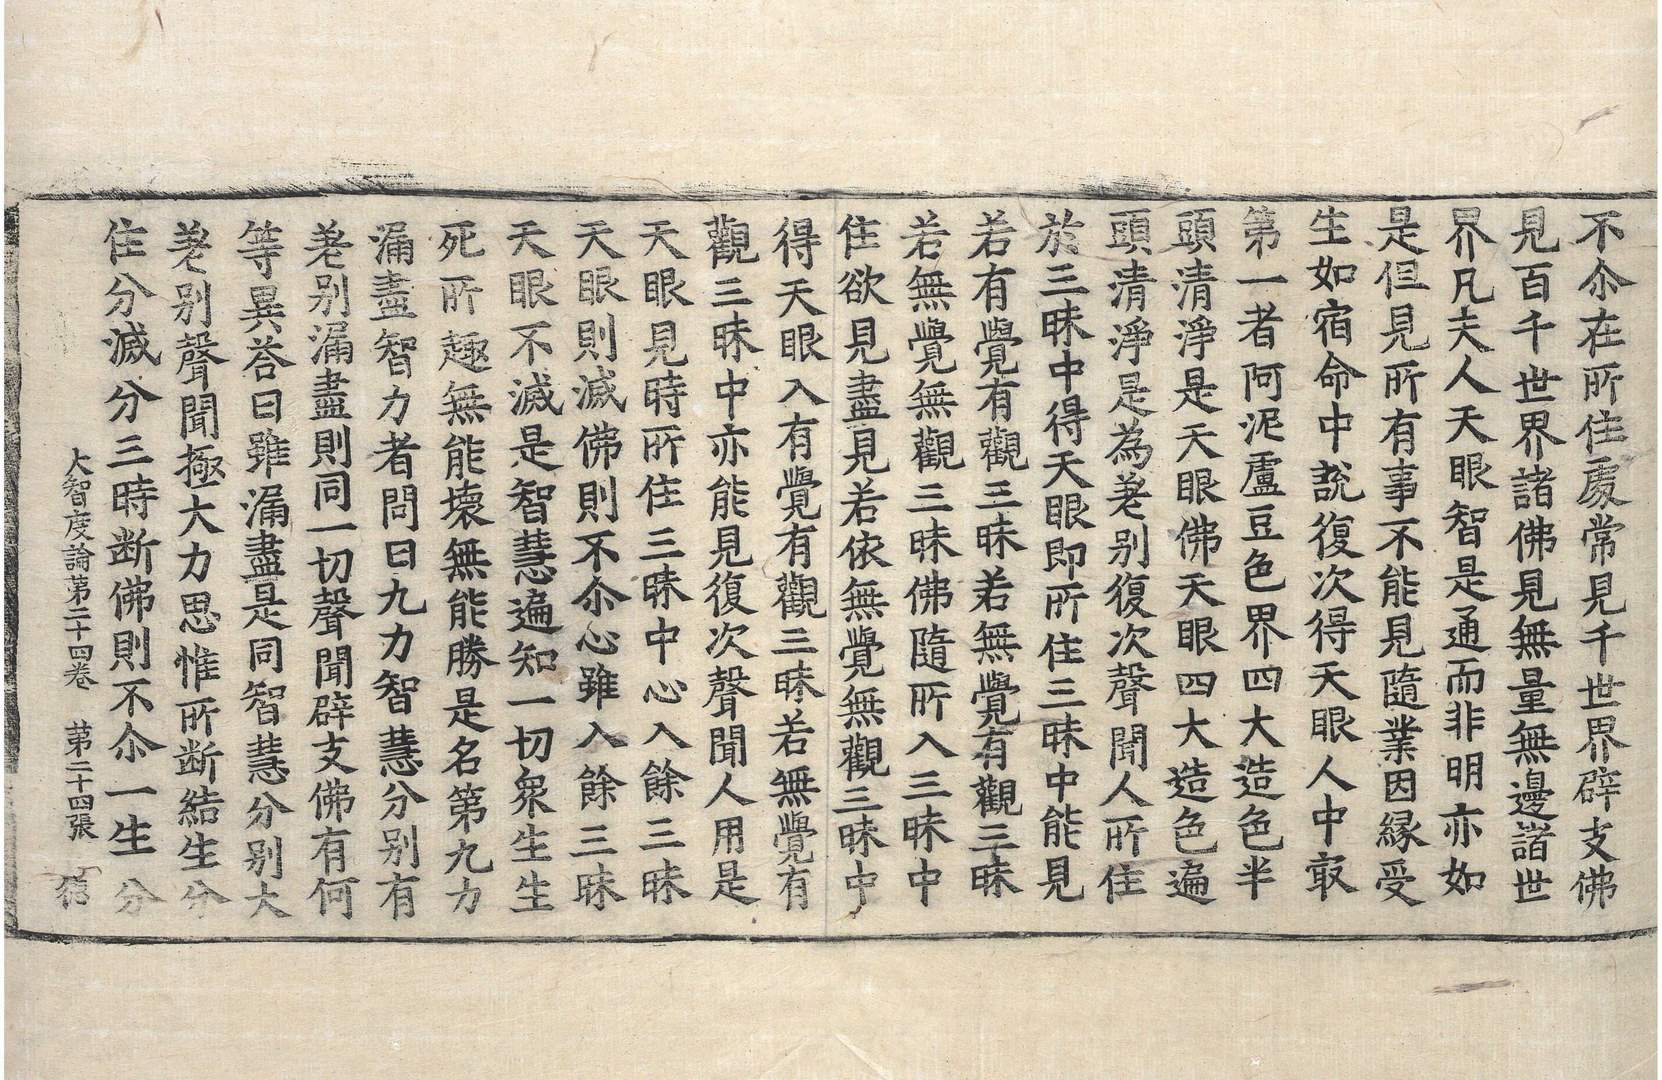 不尒在所住處常見千世界辟支佛
見百千世界諸佛見無量無邊諸世
界凡夫人天眼智是通而非明亦如
是但見所有事不能見隨業因緣受
生如宿命中說復次得天眼人中㝡
第一者阿泥盧豆色界四大造色半
頭清淨是天眼佛天眼四大造色遍
頭清淨是為差別復次聲聞人所住
於三昧中得天眼即所住三昧中能見
若有覺有觀三昧若無覺有觀三昧
若無覺無觀三昧佛隨所入三昧中
住欲見盡見若依無覺無觀三昧中
得天眼入有覺有觀三昧若無覺有
觀三昧中亦能見復次聲聞人用是
天眼見時所住三昧中心入餘三昧
天眼則滅佛則不尒心雖入餘三昧
天眼不滅是智慧遍知一切衆生生
死所趣無能壞無能勝是名第九力
漏盡智力者問曰九力智慧分別有
差別漏盡則同一切聲聞辟支佛有何
等異荅曰雖漏盡是同智慧分別大
差別聲聞極大力思惟所断結生分
住分滅分三時断佛則不尒一生分
大智度論第二十四卷 第二十四張